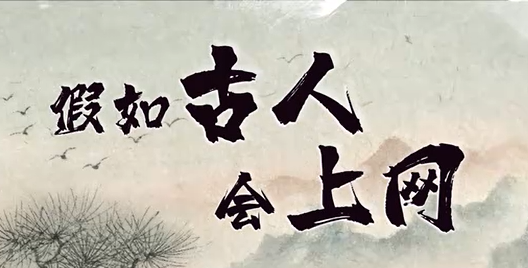 假如古人
会上网